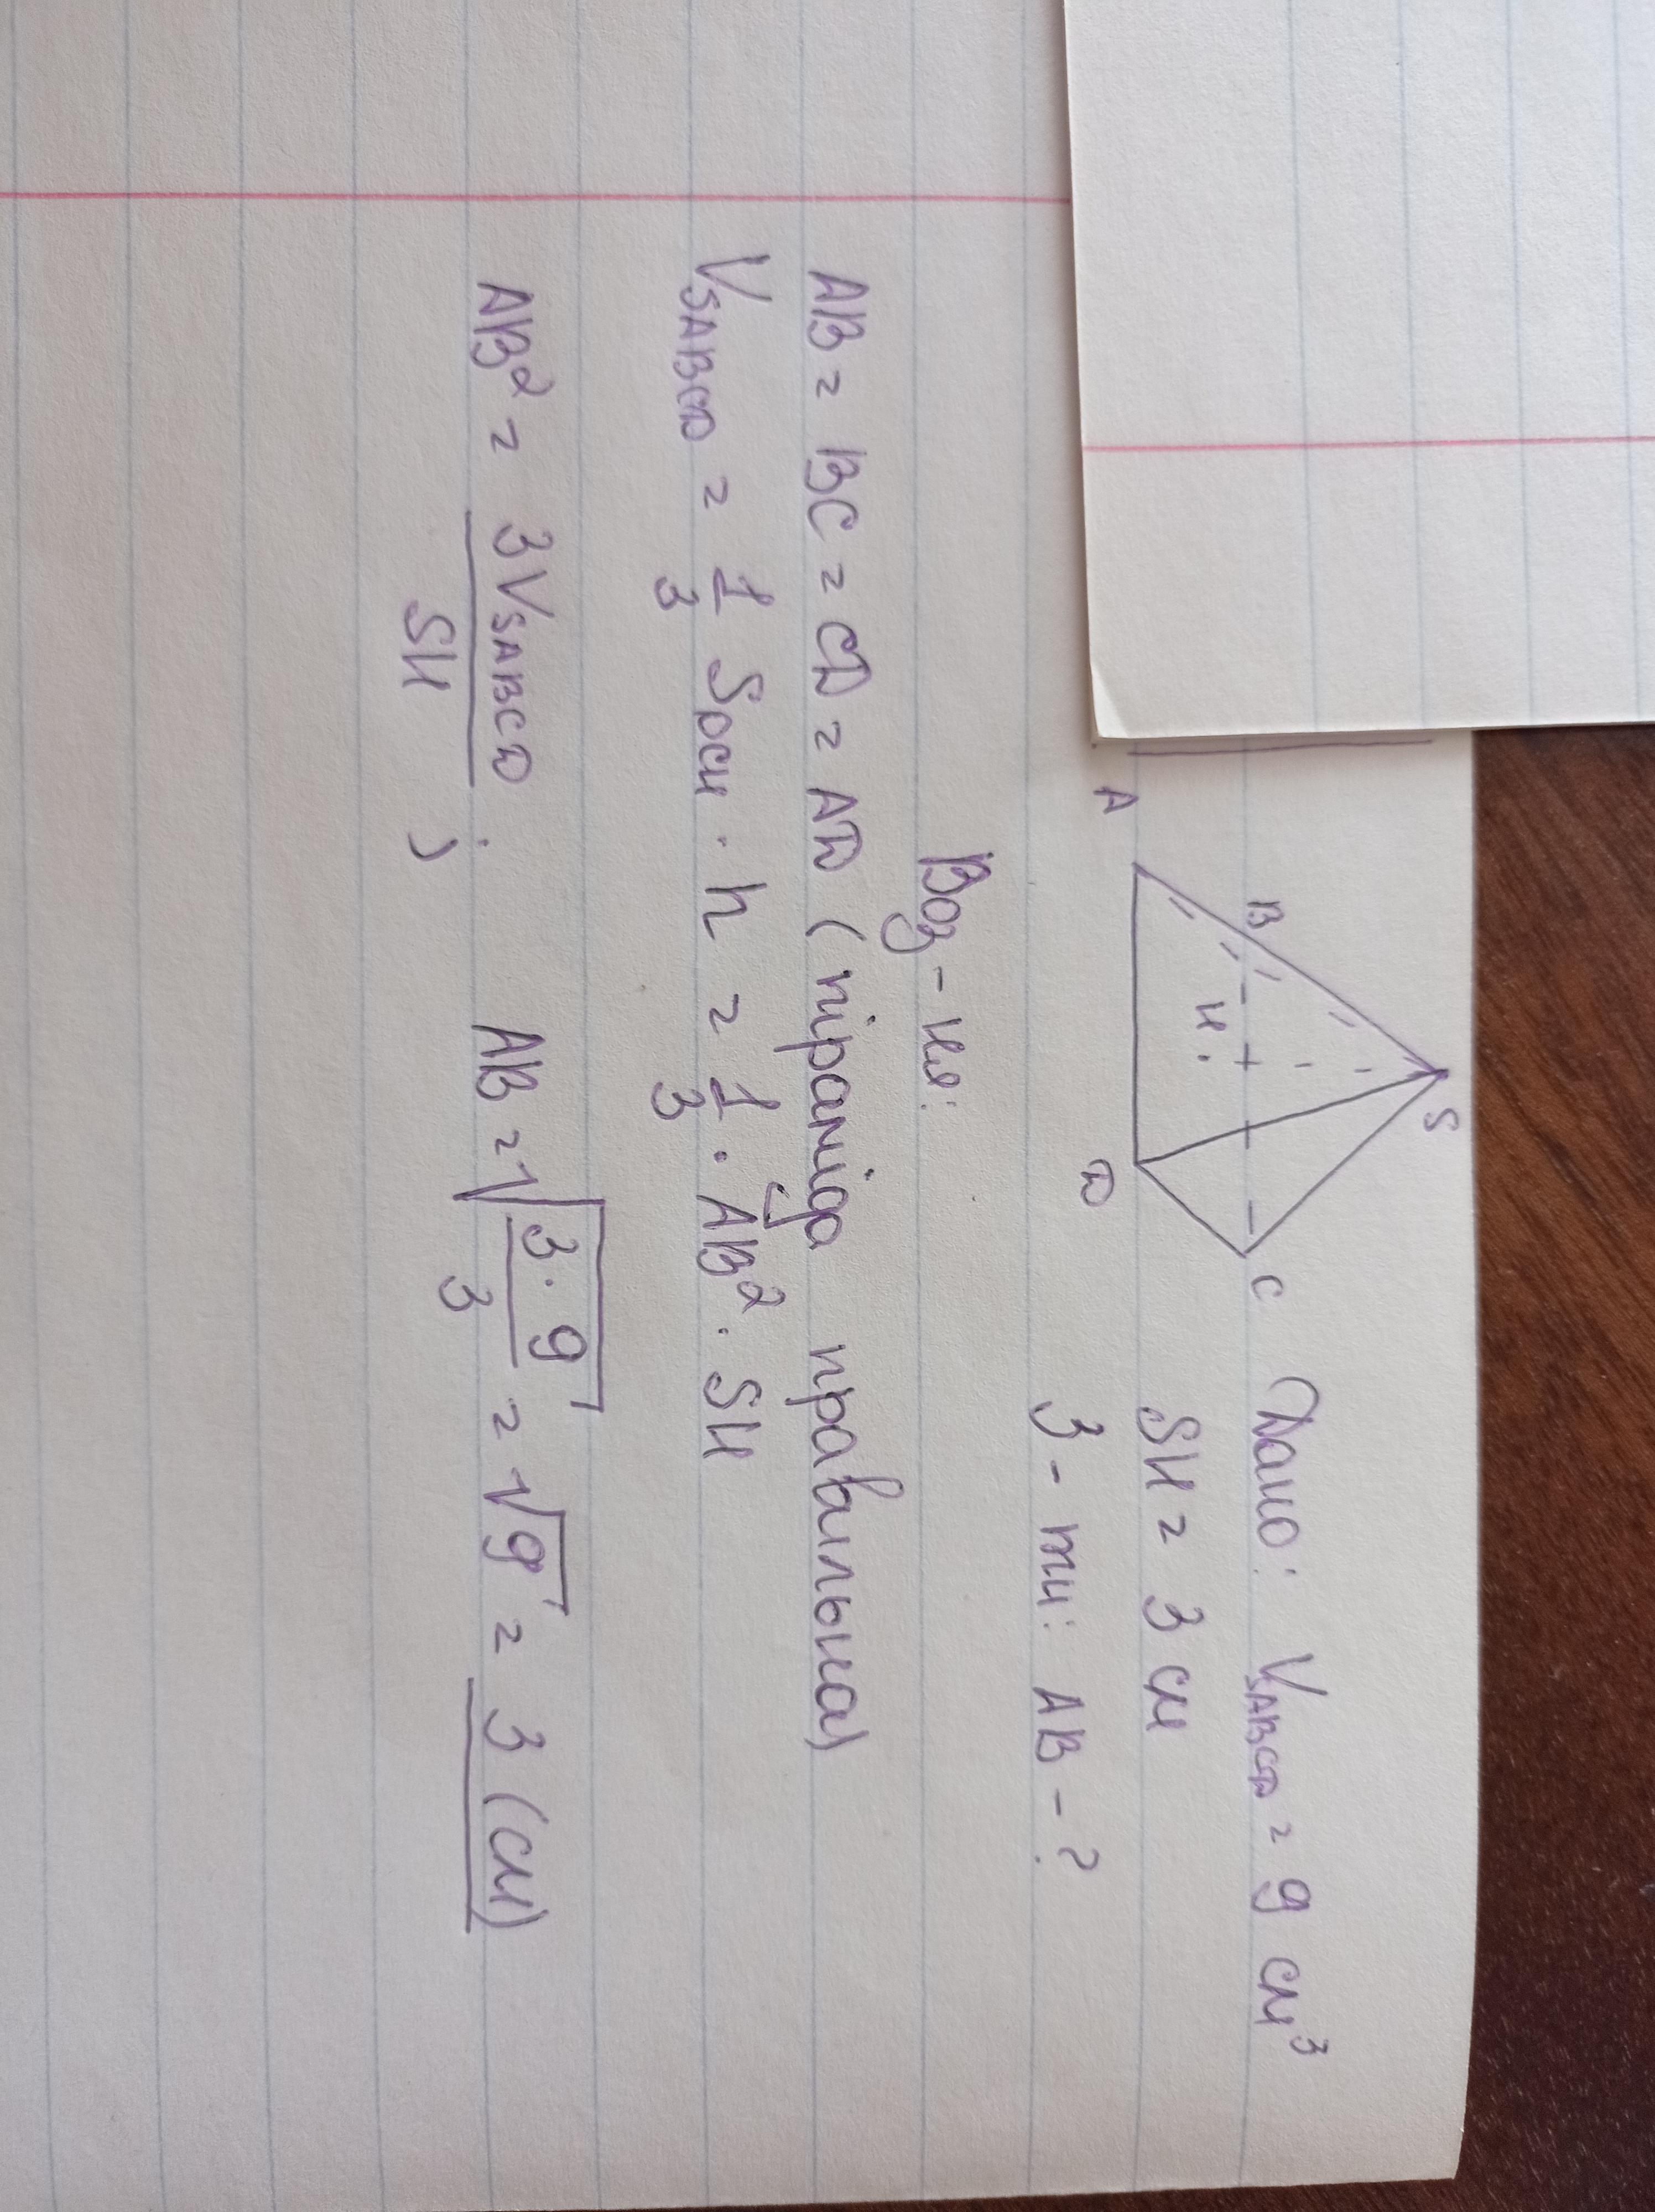 S
B
C
H
A
D
Дано: V_SABCD = 9 см³
SH = 3 см
З-ти: AB - ?
Роз-ня:
AB = BC = CD = AD (піраміда правильна)
V_SABCD = 1/3 Sосн · h = 1/3 · AB² · SH
AB² = 3V_SABCD / SH ; AB = √(3 · 9 / 3) = √9 = 3 (см)